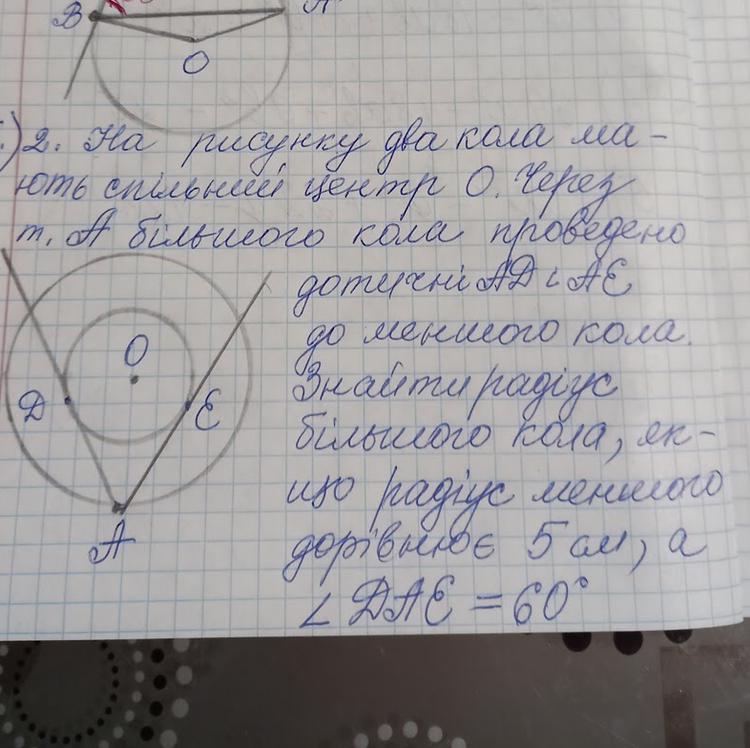 B
O
2. На рисунку два кола ма-
ють спільний центр О. Через
т. А більшого кола проведено
дотичні AD і AE
до меншого кола.
Знайти радіус
більшого кола, як-
що радіус меншого
дорівнює 5 см, а
∠DAE = 60°
O
D
E
A